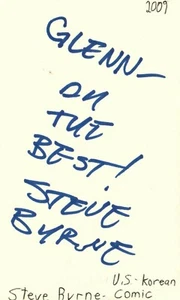 2009
GLENN-
ON
THE
BEST!
STEVE
BYRNE
U.S - Korean
Steve Byrne - Comic